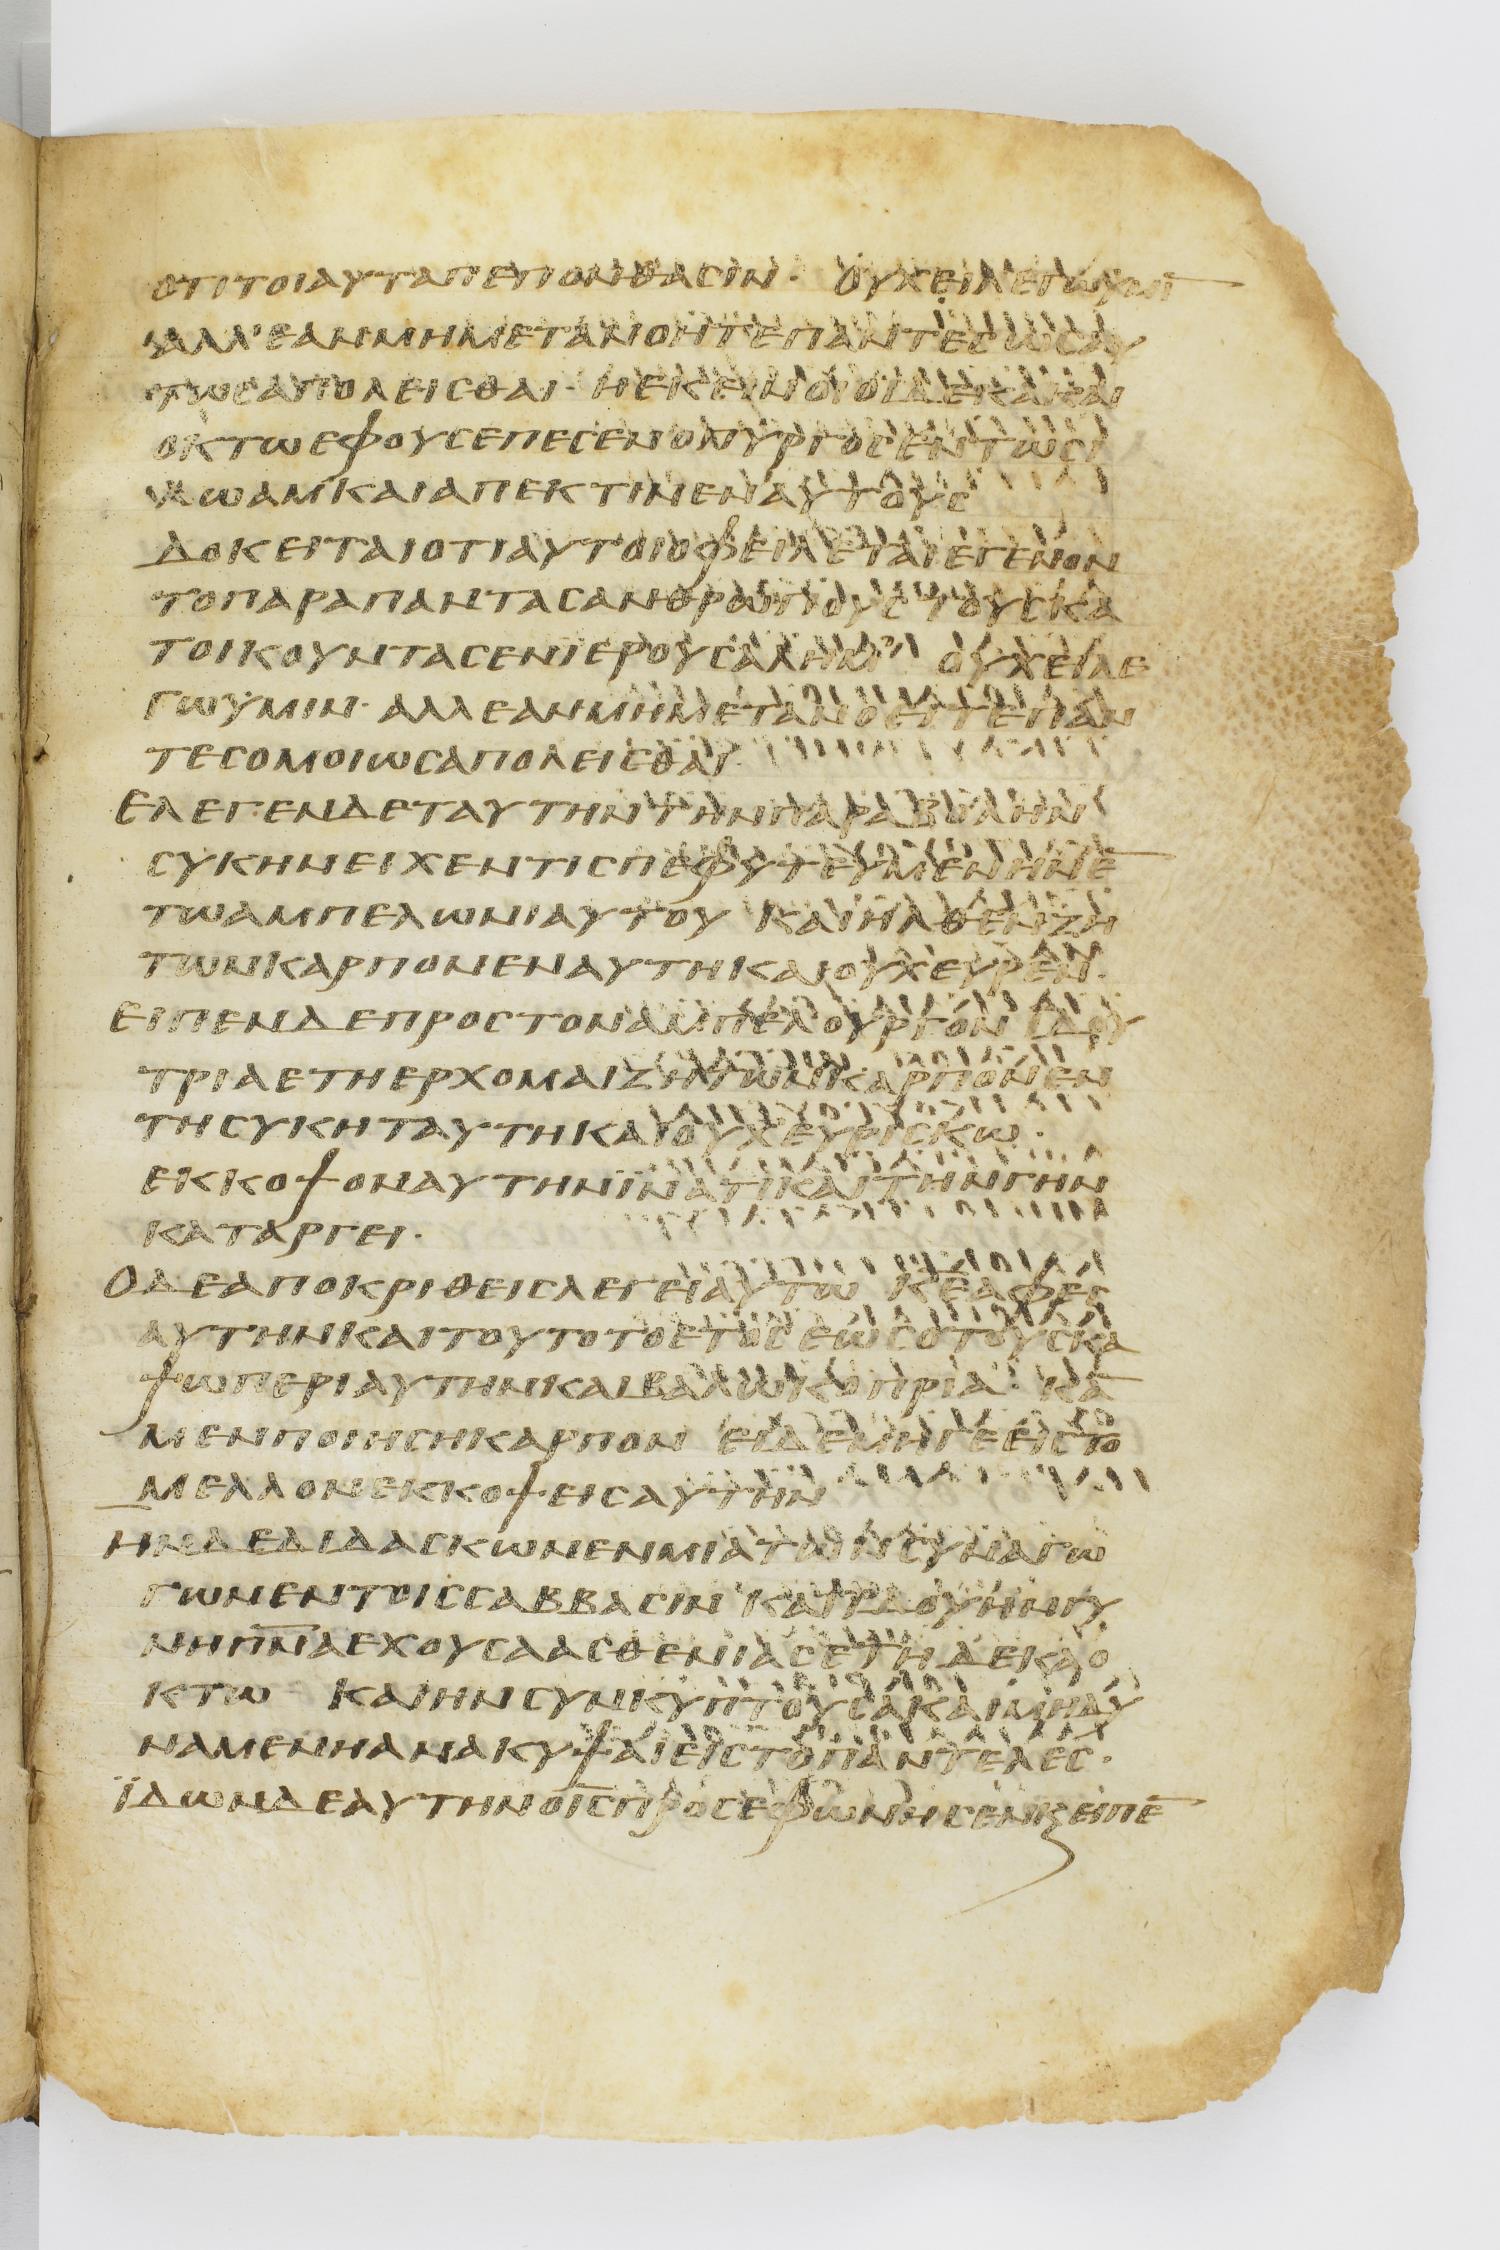 οτιτοιαυταπεπονθασιν· ουχειλεγωυμῑ
αλλ’εανμημετανοητεπαντεσωσαυ
τωσαπολεισθαι· ηεκεινοιοιδεκακαι
οκτωεφουσεπεσενοπυργοσεντωσι
λωαμκαιαπεκτινεναυτουσ
δοκειταιοτιαυτοιοφειλεταιεγενον
τοπαραπαντασανθρωπουστουσκα
τοικουντασενιερουσαλημ’ ουχειλε
γωϋμιν· αλλεανμημετανοειτεπαν
τεσομοιωσαπολεισθαι·
ελεγ·ενδεταυτηντηνπαραβολην
συκηνειχεντισπεφυτευμενηνε̄
τωαμπελωνιαυτου καιηλθενζη
τωνκαρπονεναυτηκαιουχευρεν·
ειπενδεπροστοναμπελουργον ιδου
τριαετηερχομαιζητωνκαρπονεν
τησυκηταυτηκαιουχευρισκω·
εκκοψοναυτηνϊνατικαιτηνγην
καταργει·
οδεαποκριθεισλεγειαυτω κ̄ε̄αφεσ
αυτηνκαιτουτοτοετοσεωσοτουσκα
ψωπεριαυτηνκαιβαλωκοπρια· κᾱ
μενποιησηκαρπον ειδεμηγεειστο
μελλονεκκοψεισαυτην
ηνδεδιδασκωνενμιατωνσυναγω
γωνεντοισσαββασιν καιϊδουηνγυ
νηπ̄ν̄αεχουσαασθενιασετηδεκαο
κτω καιηνσυνκυπτουσακαιμηδυ
ναμενηανακυψαιειστοπαντελεσ·
ϊδωνδεαυτηνοῑσ̄προσεφωνησενκειπε̄